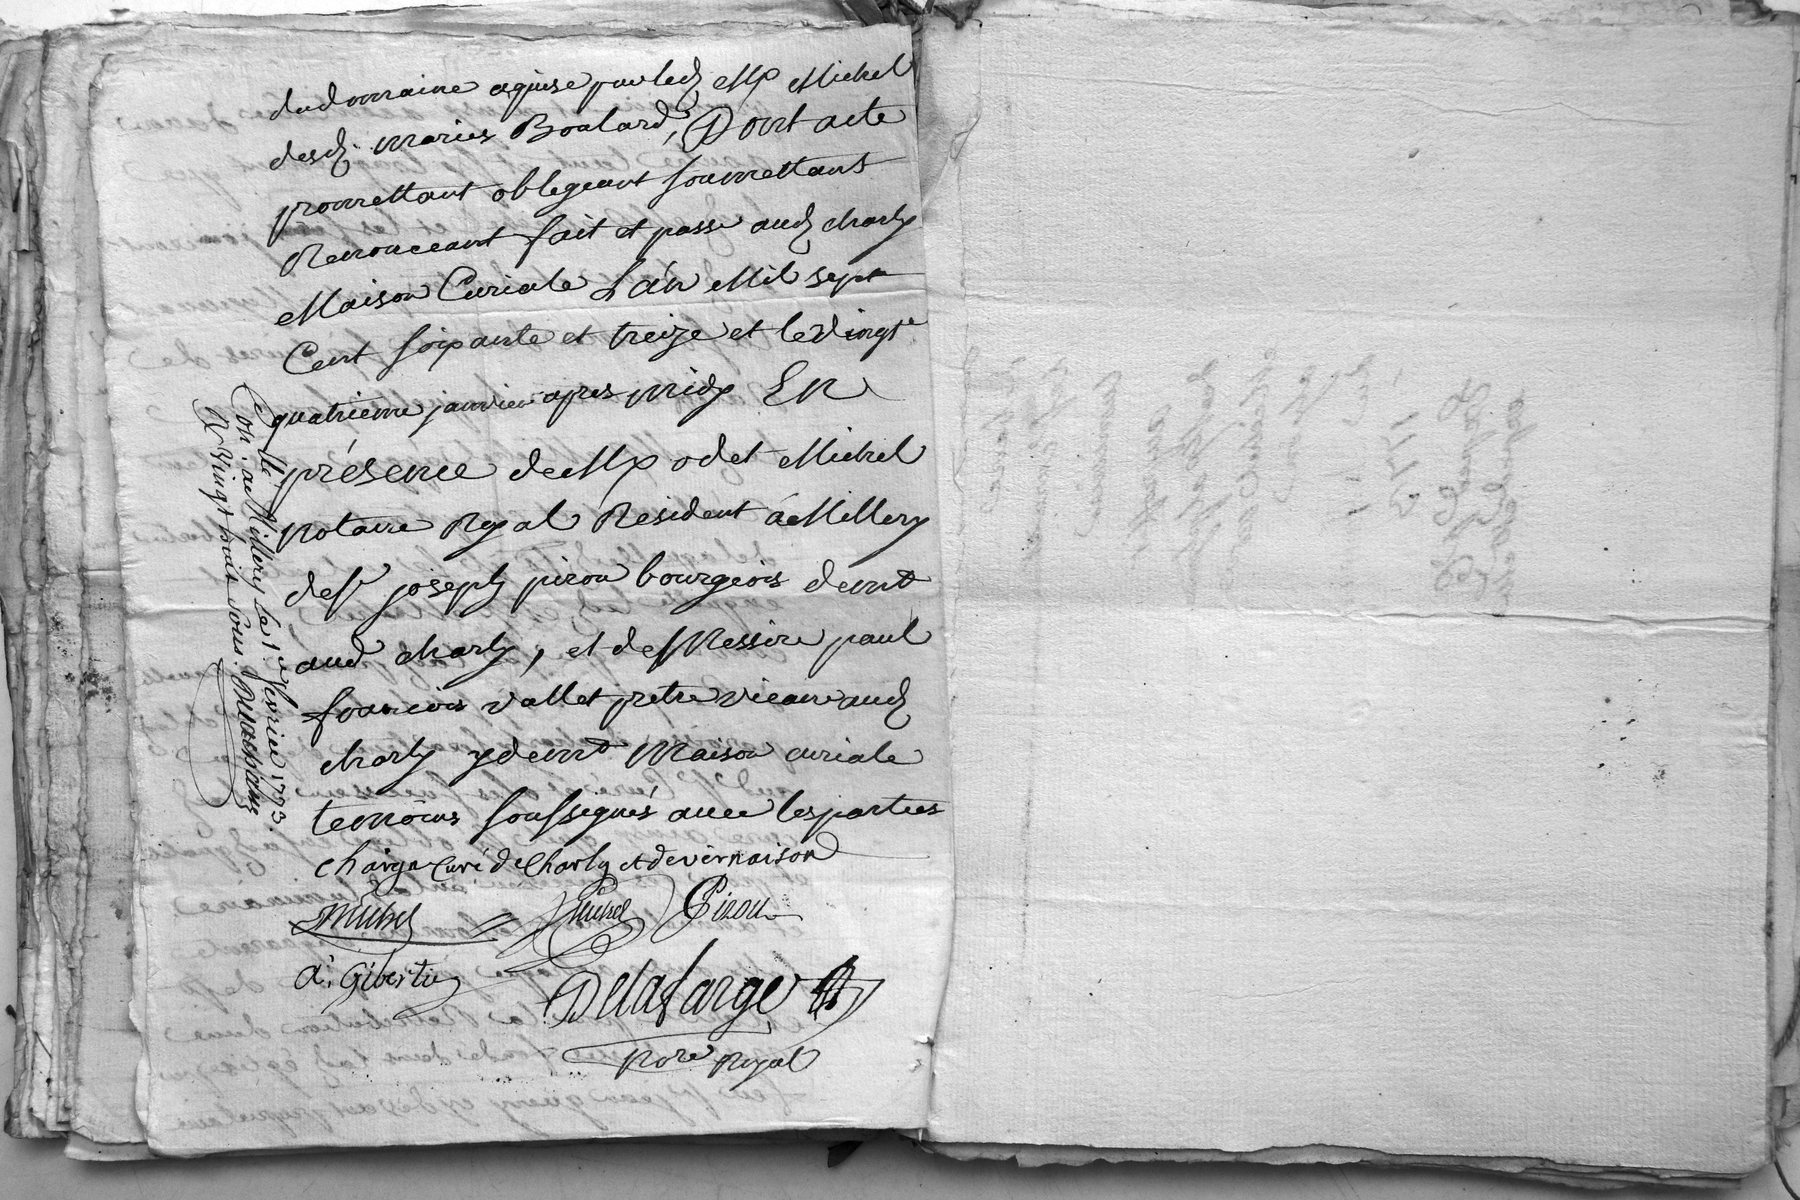 dud domaine aquise par led Mr Michel
desd. maries Boulard, Dont acte
promettant oblegeant soumettant
Renonceant fait et passé aud charly
Maison Curiale L'an Mil sept
Cent soixante et treize et le vingt
quatrieme janvier apres midy En
présence de Mr odet Michel
notaire Royal Resident a Millery
de sr joseph pizou bourgeois demt
aud charly, et de Messire paul
francois vallet pretre vicaire aud
charly y demt Maison curiale
temoins soussignés avec les parties
chaiga Curé de Charly et de vernaison
Michel Michel Pizou
A. Gibertie
Delafarge
Nore Royal
Con. a Millery le 1er fevrier 1773.
R vingt huit sous.